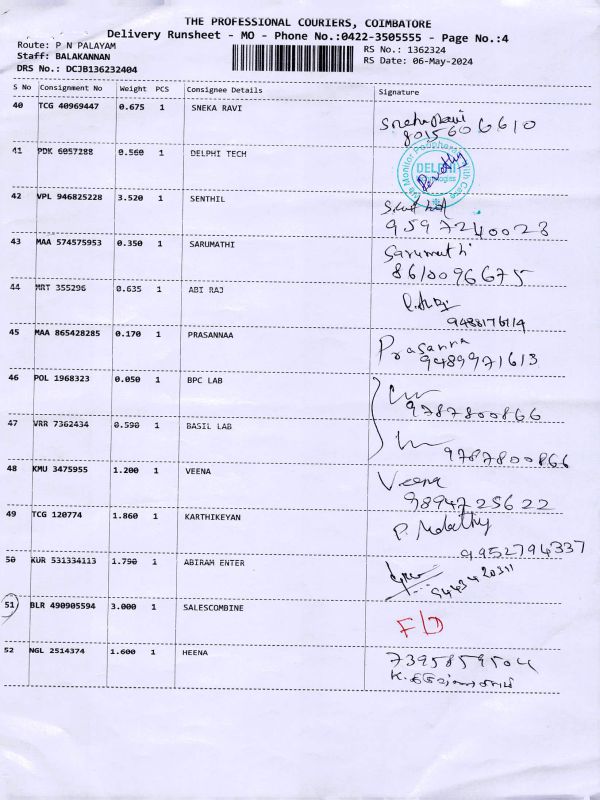 THE PROFESSIONAL COURIERS, COIMBATORE
Delivery Runsheet - MO - Phone No.:0422-3505555 - Page No.:4
Route: P N PALAYAM
RS No.: 1362324
Staff: BALAKANNAN
RS Date: 06-May-2024
DRS No.: DCJB136232404
S No Consignment No Weight PCS Consignee Details Signature
40 TCG 40969447 0.675 1 SNEKA RAVI
Sneha Ravi
8015606610
41 PDK 6057288 0.560 1 DELPHI TECH
DELPHI
42 VPL 946825228 3.520 1 SENTHIL
9597240028
43 MAA 574575953 0.350 1 SARUMATHI
Sarumathi
8610096675
44 MRT 355296 0.635 1 ABI RAJ
45 MAA 865428285 0.170 1 PRASANNAA
Prasanna
9489971613
46 POL 1968323 0.050 1 BPC LAB
9787800866
47 VRR 7362434 0.590 1 BASIL LAB
9787800866
48 KMU 3475955 1.200 1 VEENA
Veena
9894725622
49 TCG 120774 1.860 1 KARTHIKEYAN
P. Malathy
9952794337
50 KUR 531334113 1.790 1 ABIRAM ENTER
51 BLR 490905594 3.000 1 SALESCOMBINE
F/D
52 NGL 2514374 1.600 1 HEENA
7395859504